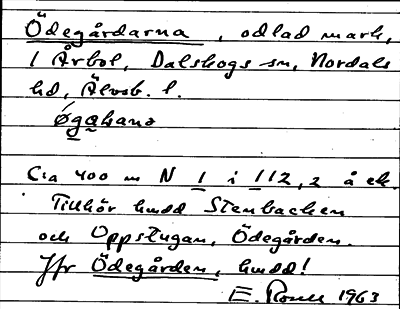 Ödegårdarna, odlad mark,
i Årbol, Dalskogs sn, Nordals
hd, Älvsb. l.
øgaḥana
Ca 400 m N 1 i 112,2 å ek.
Tillhör hmdd Stenbacken
och Uppstugan, Ödegården.
Jfr Ödegården, hmdd!
E. 1963